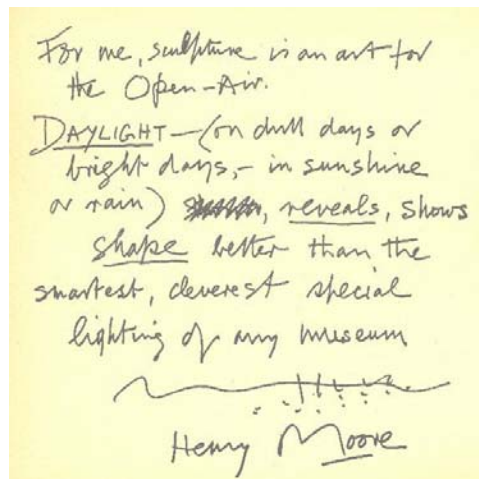 For me, sculpture is an art for
the Open-Air.
DAYLIGHT-(on dull days or
bright days,- in sunshine
or rain) , reveals, shows
shape better than the
smartest, cleverest special
lighting of any museum
Henry Moore